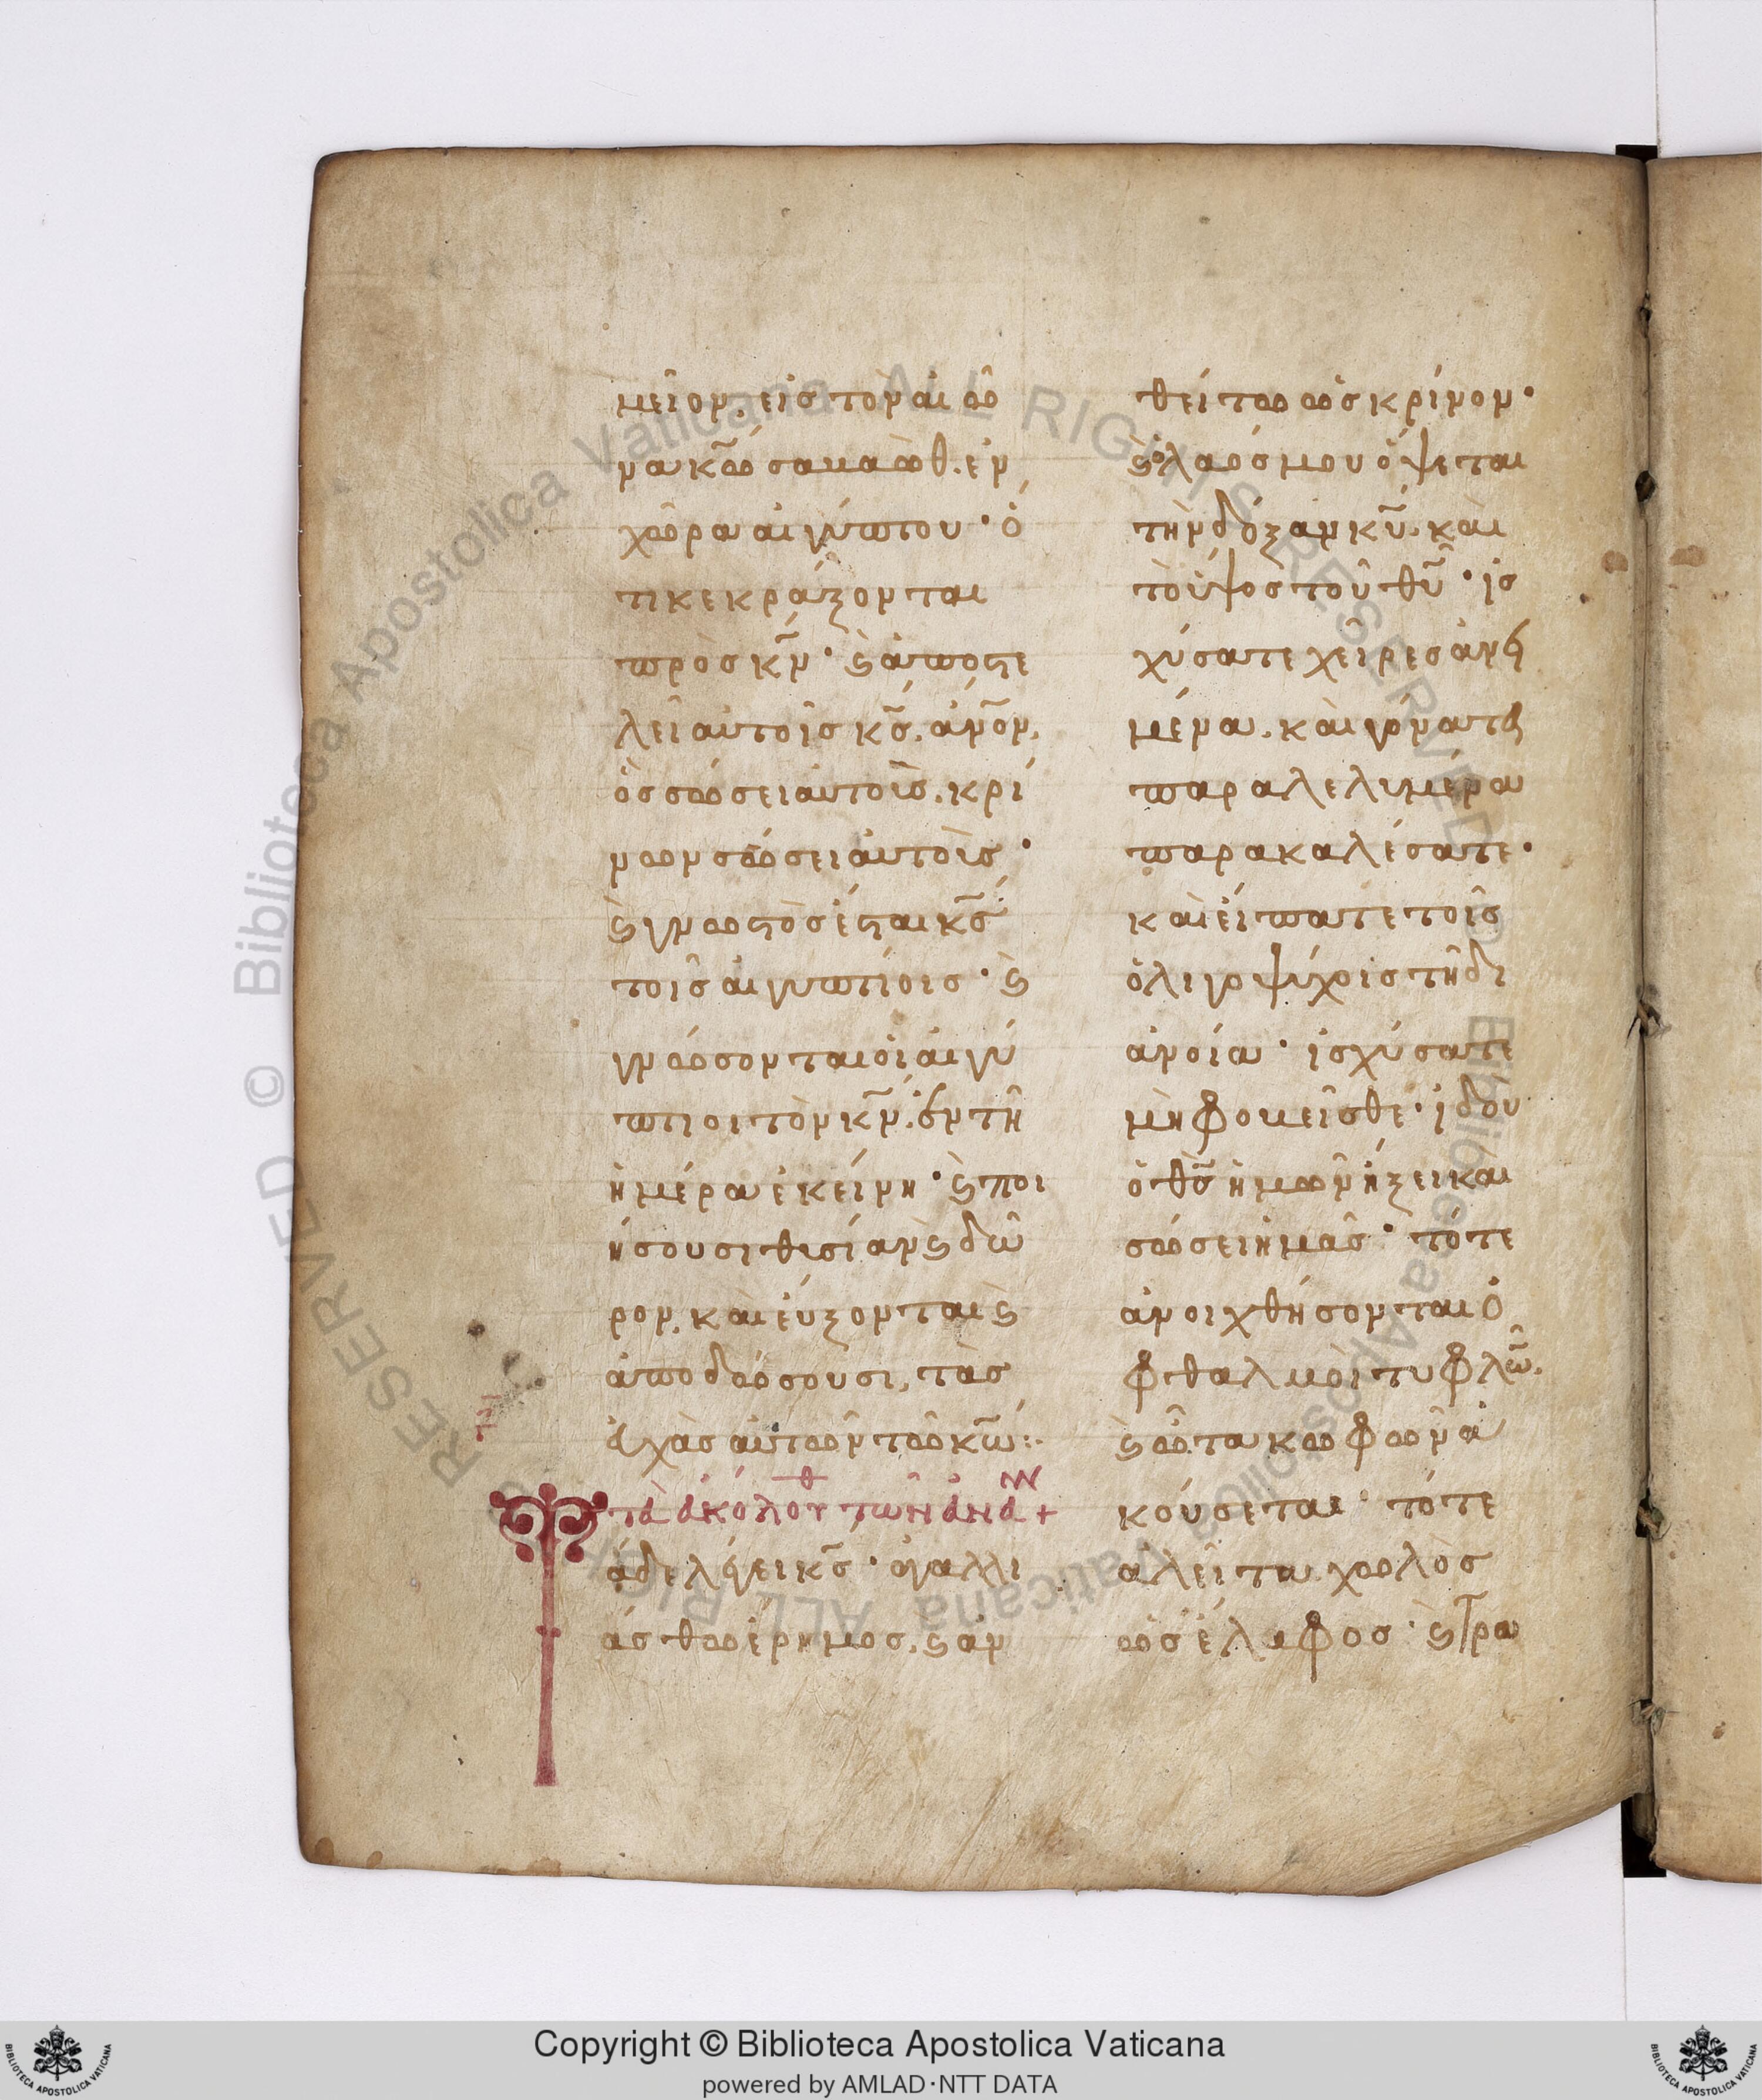 μεῖον, εἰς τὸν αἰῶ
να κ̅ω̅ σαβαὼθ. ἐν
χώρα αἰγύπτου· ὁ
τι κεκράξονται
πρὸς κ̅ν̅· ϛ ἀποστε
λεῖ αὐτοῖς κ̅ς̅. α̅ν̅ο̅ν̅.
ὃς σώσει αὐτοῖς. κρί
νων σώσει αὐτοῖς·
ϛ γνωστὸς ἔσται κ̅ς̅
τοῖς αἰγυπτίοις· ϛ
γνώσονται οἱ αἰγύ
πτιοι τὸν κ̅ν̅. ἐν τῆ
ἡμέρα ἐκείνη· ϛ ποι
ήσουσι θισίαν ϛ δῶ
ρον. καὶ εὔξονται ϛ
ἀποδώσουσι, τὰς
ἐχὰς αὐτῶν τῶ κ̅ω̅:
τὰ ἀκόλουθ τῶν ἀνα +
άδε λέγει κ̅ς̅· ἀγαλλι
άσθω ἔρημος. ϛ ἀν
θείτω ὡς κρίνον·
ϛ ὁ λαός μου ὄψεται
τὴν δόξαν κ̅υ̅. καὶ
τὸ ὕψος τοῦ θ̅υ̅· ἰσ
χύσατε χεῖρες ἀνει
μένα. καὶ γόνατα
παραλελυμένα
παρακαλέσατε·
καὶ εἴπατε τοῖς
ὀλιγοψύχοις τῆ δι
ανοία· ἰσχύσατε
μὴ φοβεῖσθε· ἰδοὺ
ὁ θ̅ς̅ ἡμῶν ἥξει καὶ
σώσει ἡμᾶς· τότε
ἀνοιχθήσονται ὀ
φθαλμοὶ τυφλῶ.
ϛ ὦτα κωφῶν ἀ
κούσεται· τότε
αλεῖτα χωλὸς
ὡς ἔλαφος· ϛ τρα
Copyright © Biblioteca Apostolica Vaticana
powered by AMLAD·NTT DATA